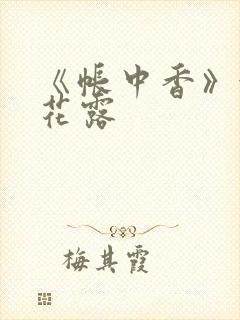 《帐中香》
花露
梅其霞